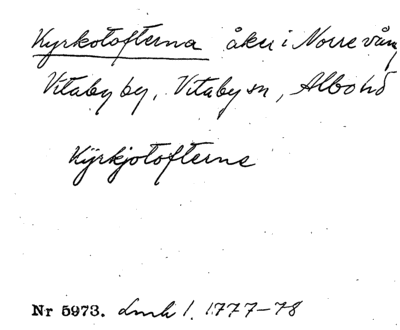 Kyrkotofterna åker i Norre vång
Vitaby by, Vitaby sn, Albo hd
Kÿrkjotofterne
Nr 5973. Lmh 1. 1777-78